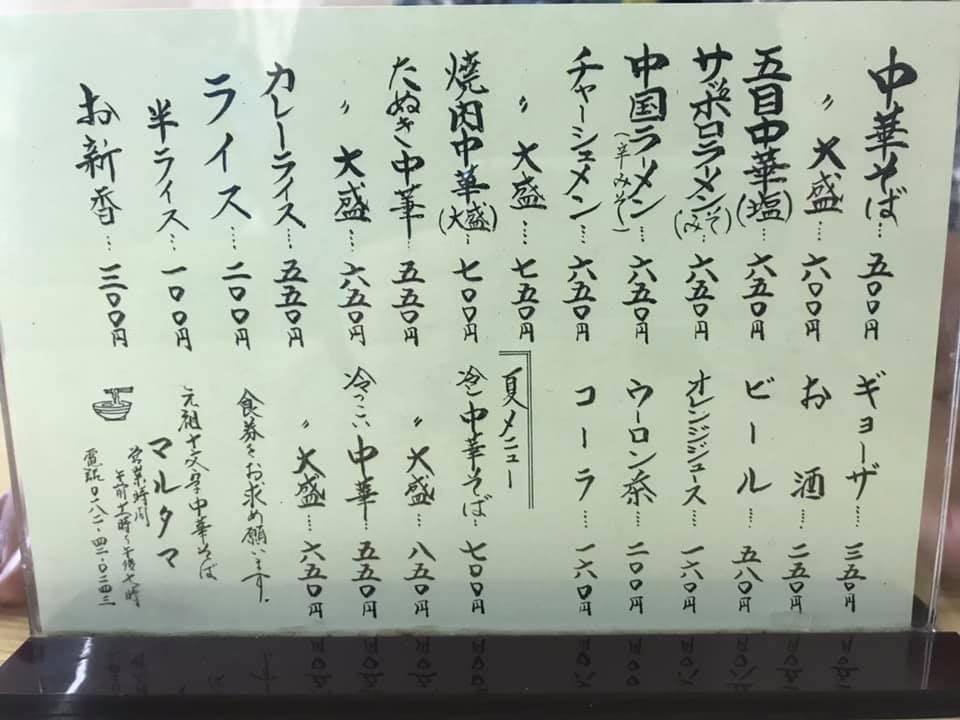 中華そば…五〇〇円
〃大盛…六〇〇円
五目中華(塩)…六五〇円
サッポロラーメン(みそ)…六五〇円
中国ラーメン(辛みそ)…六五〇円
チャーシュメン…六五〇円
〃大盛…七五〇円
焼肉中華(大盛)…七〇〇円
たぬき中華…五五〇円
〃大盛…六五〇円
カレーライス…五五〇円
ライス…二〇〇円
半ライス…一〇〇円
お新香…三〇〇円
ギョーザ…三五〇円
お酒…二五〇円
ビール…五八〇円
オレンジジュース…一六〇円
ウーロン茶…二〇〇円
コーラ…一六〇円
夏メニュー
冷し中華そば…七〇〇円
〃大盛…八五〇円
冷っこい中華…五五〇円
〃大盛…六五〇円
食券をお求め願います。
元祖十文字中華そば
マルタマ
営業時間
午前十一時〜午後七時
電話〇一八二-四二-〇二四三